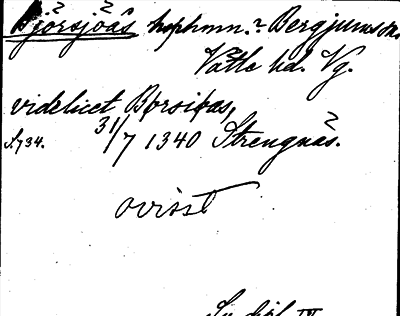 Björsjöås hophmn.? Bergjums sn.
Vättle hd. Vg.
videlicet Børsiøas,
S. 734. 31/7 1340 Strengnäs.
ovisst
Sv. dipl. IV